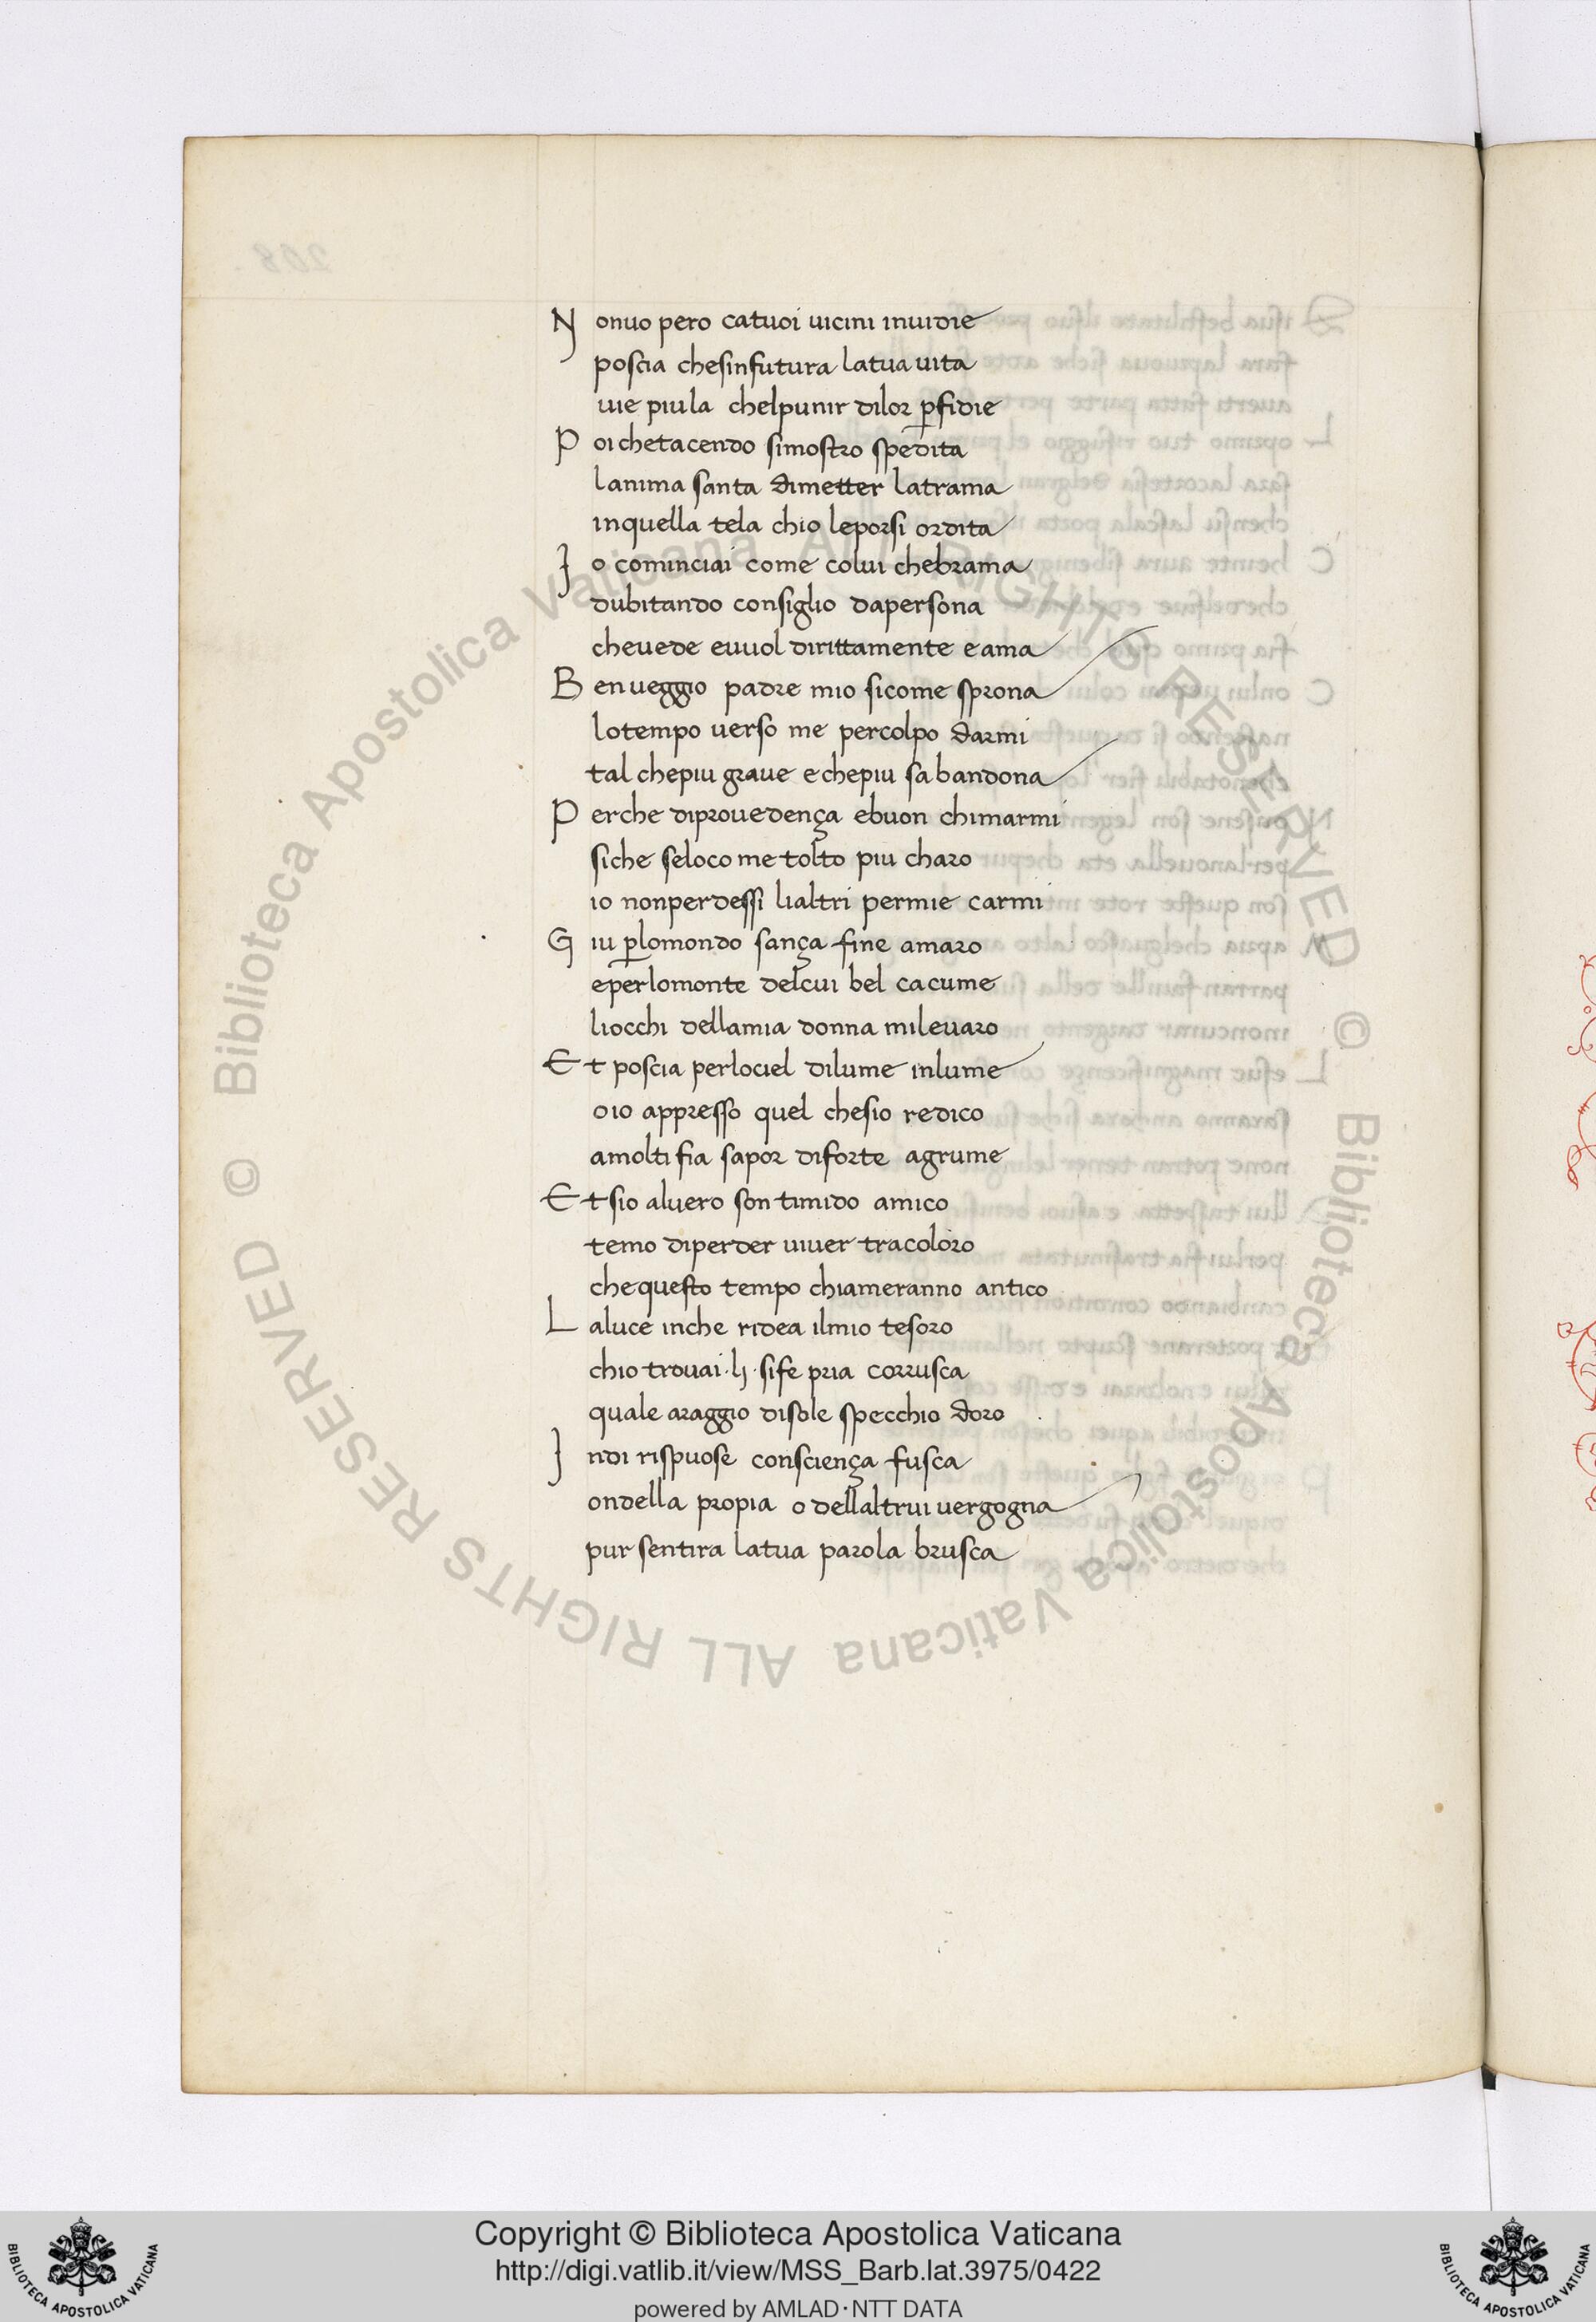 N onuo pero catuoi uicini inuidie
poscia chesinfutura latua uita
uie piula chelpunir dilor ꝑfidie
P oi chetacendo simostro spedita
lanima santa dimetter latrama
inquella tela chio leporsi ordita
I o cominciai come colui chebrama
dubitando consiglio dapersona
cheuede euuol dirittamente e ama
B en ueggio padre mio sicome sprona
lotempo uerso me percolpo darmi
tal chepiu graue e chepiu sabandona
P erche diprouedença ebuon chimarmi
siche seloco me tolto piu charo
io nonperdessi lialtri permie carmi
G iu ꝑlomondo sança fine amaro
eperlomonte delcui bel cacume
liocchi dellamia donna mileuaro
E t poscia perlociel dilume inlume
oio appresso quel chesio redico
amolti fia sapor diforte agrume
E t sio aluero son timido amico
temo diperder uiuer tracoloro
chequesto tempo chiameranno antico
L aluce inche ridea ilmio tesoro
chio trouai·li·sife pria corrusca
quale araggio disole specchio doro
I ndi rispuose consciença fusca
ondella propia o dellaltrui uergogna
pur sentira latua parola brusca
© Biblioteca Apostolica Vaticana ALL RIGHTS RESERVED
© Biblioteca Apostolica Vaticana ALL RIGHTS RESERVED
Copyright © Biblioteca Apostolica Vaticana
http://digi.vatlib.it/view/MSS_Barb.lat.3975/0422
powered by AMLAD·NTT DATA
BIBLIOTECA APOSTOLICA VATICANA
BIBLIOTECA APOSTOLICA VATICANA